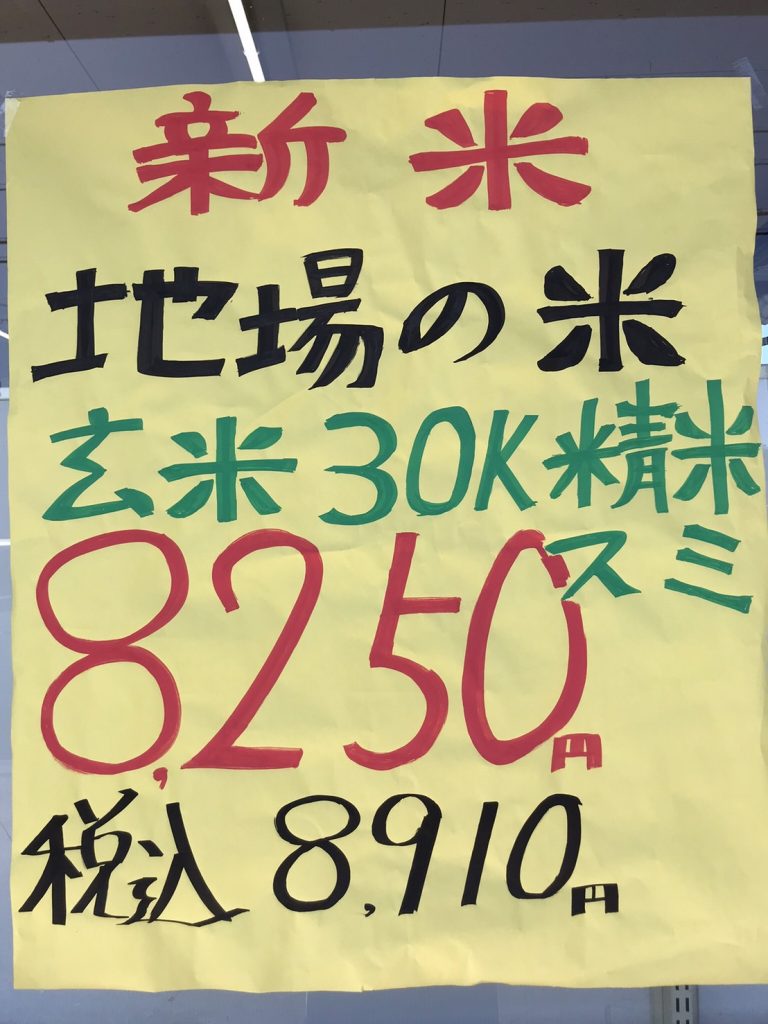 新米
地場の米
玄米30K精米
スミ
8,250円
税込8,910円